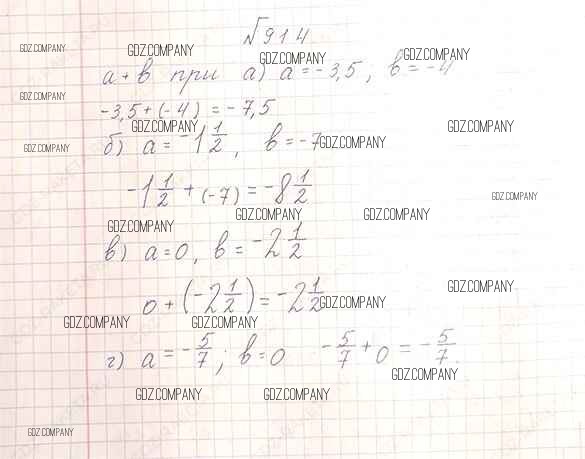 № 914
GDZ.COMPANY GDZ.COMPANY GDZ.COMPANY GDZ.COMPANY
a + b при а) a = -3,5; b = -4
GDZ.COMPANY
-3,5 + (-4) = -7,5
GDZ.COMPANY GDZ.COMPANY
б) a = -1 1/2, b = -7
GDZ.COMPANY GDZ.COMPANY
-1 1/2 + (-7) = -8 1/2
GDZ.COMPANY
GDZ.COMPANY GDZ.COMPANY
GDZ.COMPANY
в) a = 0, b = -2 1/2
GDZ.COMPANY
0 + (-2 1/2) = -2 1/2
GDZ.COMPANY
GDZ.COMPANY GDZ.COMPANY
г) a = -5/7; b = 0 -5/7 + 0 = -5/7
GDZ.COMPANY
GDZ.COMPANY GDZ.COMPANY
GDZ.COMPANY